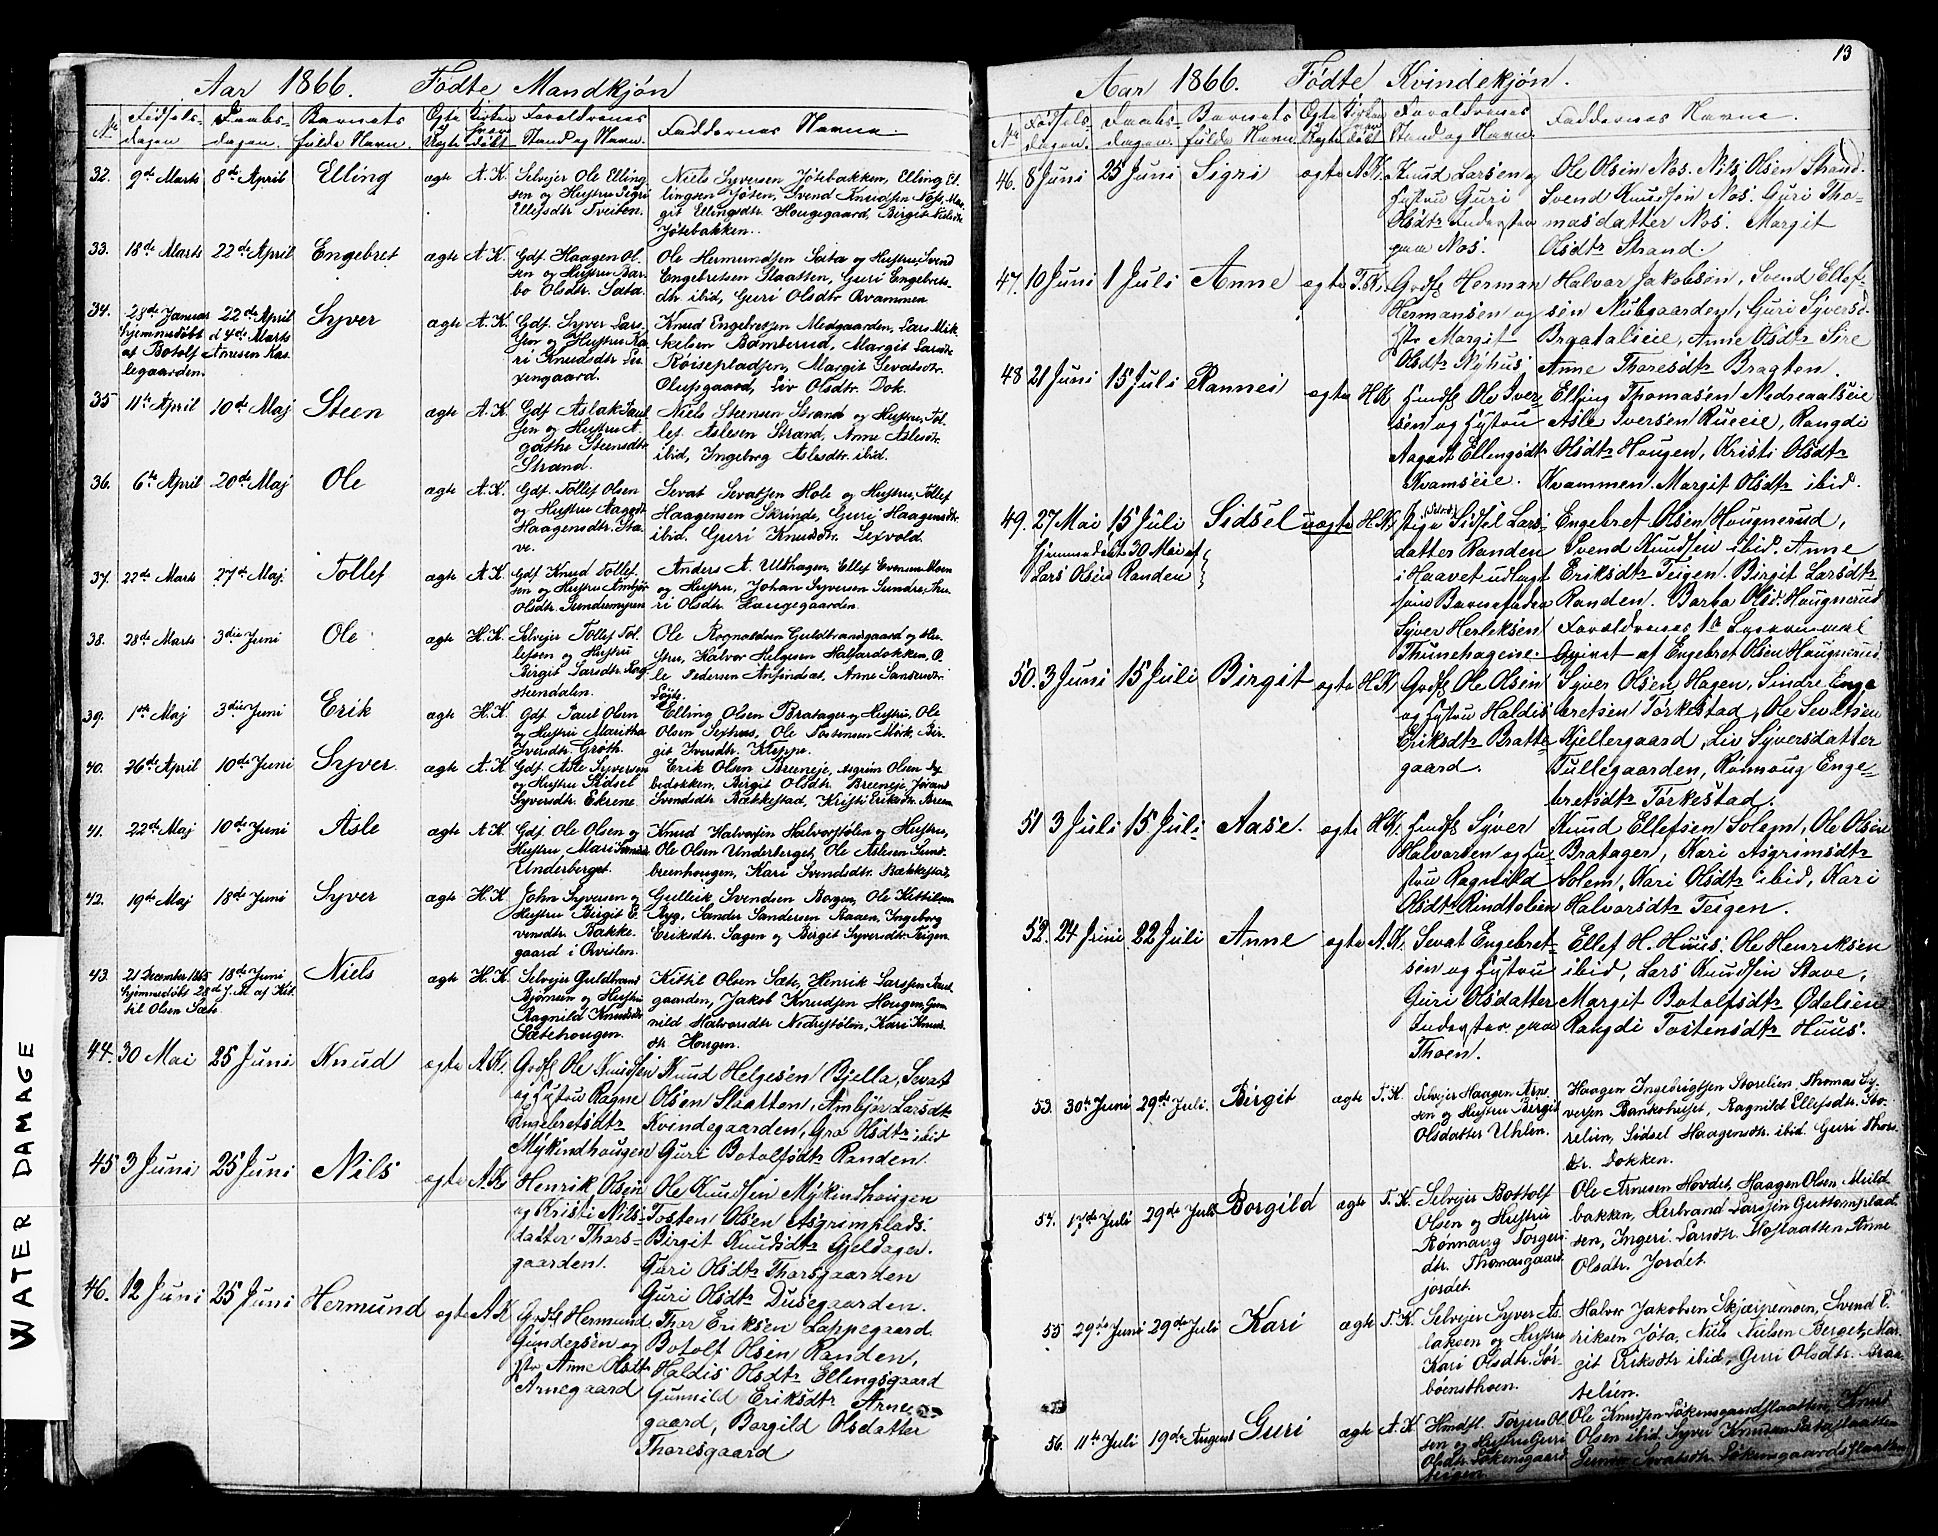 Aar 1866. Fødte Mandkjøn
No Fødsels-dagen Daabs-dagen. Barnets fulde Navn. Ægte Uægte Forældrenes Stand og Navn. Faddernes Navne.
32. 9de Marts 8de April Elling ægte A. K. Selvejer Ole Elling-
sen og Hustru Sigri
Ellefsdtr Tveiten.
Niels Syversen Jøtebakken, Elling El-
lingsen Jøten, Svend Knudsen Nøss, Mar-
git Ellingsdtr Hougegaard, Birgit Nielsdtr
Jøtebakken.
33. 18de Marts 22de April Engebret ægte A. K. Gdf. Haagen Ol-
sen og Hustru Bar-
bo Olsdtr. Sata.
Ole Hermundsen Sata og Hustru, Svend
Engebretsen Slaatten, Guri Engebrets-
dtr ibid, Guri Olsdtr Qvammen
34. 28de Januar 22de April Syver ægte A. K.
hjemmedøbt d 4de Marts
af Botolf Arnesen Kas-
legaarden.
Gdf. Syver Lars-
sen og Hustru Ka-
ri Knudsdtr
Knud Engebretsen Medgaarden, Lars Mik-
kelsen Bømberud, Margit Larsdtr
Røisepladsen, Margit Sevatsdtr.
Olufsgaard, Liv Olsdtr. Dok.
35 11te April 10de Maj Steen ægte A. K. Gdf. Aslak Paul-
sen og Hustru A-
gathe Steensdtr
Strand.
Niels Steensen Strand og Hustru, Tol-
lef Aslesen Strand, Anne Aslesdtr.
ibid, Ingeborg Aslesdtr. ibid.
36. 6te April 20de Maj Ole ægte A. K. Gdf. Tollef Olsen
og Hustru Aagot
Haagensdtr. Sta-
ve.
Sevat Sevatsen Hole og Hustru, Tollef
Haagensen Skrinde, Guri Haagensdtr.
ibid. Guri Knudsdtr. Lexvold.
37. 22de Marts 27de Maj. Tollef ægte A. K. Gdf Knud Tollef-
sen og Hustru Ambjør
Olsdtr.
Anders A. Ulshagen, Ellef Evensen Moen
og Hustru, Johan Syversen Sundre, Thu-
ri Olsdtr. Haugegaarden.
38. 28de Marts 3die Juni Ole ægte H. K. Selvejer Tollef Tol-
lefsen og Hustru
Birgit Larsdtr. Rag-
stendalen.
Ole Rognaldsen Guldbrandsgaard og Hu-
stru, Halvor Helgesen Halfardokken, O-
le Pedersen
39. 1ste Maj 3die Juni Erik ægte H. K. Gdf. Paul Olsen
og Hustru Maritha
Iversdtr. Grøth.
Elling Olsen Bratager og Hustru, Ole
Olsen Sexhus, Ole Tostensen Mørk. Bir-
git Iversdtr. Kleppe.
40. 26de April 10de Juni Syver. ægte A. K. Gdf. Asle Syversen
og Hustru Sidsel
Syversdtr. Ekrene
Erik Olsen Breneje, Asgrim Olsen
Birgit Olsdtr. Breeneje, Jøran
Svendsdtr. Bækkestad, Kristi Eriksdtr.
41. 22de Maj 10de Juni Asle ægte A. K. Gdf. Ole Olsen og
Hustru Mari
Underberget.
Knud Halvorsen Halvorstølen og Hustru,
Ole Olsen Underberget, Ole Aslesen Sund-
brenhougen, Kari Svendsdtr. Bækkestad.
42. 19de Maj 18de Juni Syver ægte H. K. John Syversen og
Hustru Birgit E-
vensdtr. Bakke-
gaard i Qvisten.
Gulleik Svendsen Borgen, Ole Kittilsen
Byg, Sander Sandersen Raaen, Ingeborg
Eriksdtr. Sagen og Birgit Syversdtr. Teigen.
43. 21 December 1865 18de Juni Niels ægte H. K.
hjemmedøbt 28de J. M. af Kit-
til Olsen Sæte.
Selvejer Guldbrand
Bjørnsen og Hustru
Ragnild Knudsdtr
Sætehougen.
Kittil Olsen Sæte, Henrik Larssen Paul-
gaarden, Jakob Knudsen Hougen, Gun-
nild Halvorsdtr Nedrestølen, Kari Knuds-
dtr. Hougen.
44. 30 Mai 25 Juni Knud ægte A. K. Grdf Ole Knudsen
og Hustru Ragne
Engebretsdtr
Mykindhougen
Knud Helgesen Bjella, Sevat
Olsen Slaatten, Ambjør Larsdtr
Kvindegaarden, Gro Olsdtr ibid
Guri Botolfsdtr Randen.
45 3 Juni 25 Juni Nils ægte A. K. Henrik Olsen
og Kristi Nils-
datter Thors-
gaarden.
Ole Knudsen Mykindhougen
Tosten Olsen Asgrimplads.
Birgit Knudsdtr Gjeldager.
Guri Olsdtr Thorsgaarden
Guri Olsdtr Dusegaarden.
46. 12 Juni 25 Juni Hermund ægte A. K. Grdf Hermund
Gundersen og
Hstr Anne Olsdtr
Arnegaard
Thor Eriksen Lappegaard.
Botolf Olsen Randen,
Haldis Olsdtr Ellingsgaard
Gunnild Eriksdtr Arne-
gaard, Borgild Olsdatter
Thoresgaard
13
Aar 1866. Fødte Kvindekjøn.
No Fødsels-dagen. Daabs-dagen. Barnets fulde Navn Ægte Uægte Forældrenes Stand og Navn. Faddernes Navne.
46. 8 Juni 25 Juni Sigri ægte A.K. Knud Larsen og
Hustru Guri
Olsdtr Inderster
paa Nos.
Ole Olsen Nos. Nils Olsen Strand.
Svend Knudsen Nos. Guri Tho-
masdatter Nos. Margit
Olsdtr Strand.
47. 10 Juni 1 Juli Anne ægte T.K. Grdf Herman
Hermansen og
Hstr Margit
Olsdtr Nyhus
Halvor Jakobsen, Svend Ellef-
sen Nubgaarden, Guri Syversd.
Braatalieie, Anne Olsdtr Sire
Anne Thoresdtr Bragten.
48 21 Juni 15 Juli Rannei ægte H.K. Husf Ole Iver-
sen og Hustru
Aagodt Ellingsdtr
Kvamseie.
Elling Thomasen Nedreaalseie
Asle Iversen Rueeie, Rangdi
Olsdtr Hougen, Kristi Olsdtr
Kvammen. Margit Olsdtr ibid.
49. 27 Mai 15 Juli Sidsel uægte H.K.
hjemmedøbt 30 Mai af
Lars Olsen Randen
Pige Sidsel Lars-
datter Randen
i Haavet udlagt
som Barnefader
Syver Herleksen
Thunehageeie.
Engebret Olsen Hougnerud,
Svend Knudsen ibid. Anne
Eriksdtr Teigen. Birgit Larsdtr
Randen. Barbo Olsd. Hougnerud
Forældrenes 1ste Leiermaal
Opivet af Engebret Olsen Hougnerud
50. 3 Juni 15 Juli Birgit ægte H.K. Grdf Ole Olsen
og Hustru Haldis
Eriksdtr Bratte-
gaard.
Syver Olsen Hagen, Sindre Enge
bretsen Torkestad, Ole Sevatsen
Kjellergaard, Liv Syversdatter
Tullegaarden, Rønnoug Enge-
bretsdtr Torkestad.
51 3 Juli 15 Juli Aase. ægte H.K. Husf Syver
Halvorsen og Hu-
stru Ragnild
Olsdtr Rindtolien
Knud Ellefsen Solem, Ole Olsen
Bratager, Kari Asgrimsdtr
Solem, Kari Olsdtr ibid, Kari
Halvorsdtr Teigen.
52. 24 Juni 22 Juli Anne ægte A.K. Sevat Engebret-
sen og Hustru
Guri Olsdatter
Inderster paa
Thoen.
Ellef H. Huus, Ole Henriksen
ibid, Lars Knudsen Stave,
Margit Botolfsdtr Ødelien
Rangdi Tostensdtr Huus.
53. 30te Juni 29de Juli. Birgit ægte T. K. Selvejer Haagen Arne-
sen og Hustru Birgit
Olsdatter Uhlen.
Haagen Ingebrigtsen Storelien, Thomas Sy-
versen Bankehuset, Ragnild Ellefsdtr. Sto-
relien, Sidsel Haagensdtr. ibid. Guri Thors-
dtr. Dokken.
54. 17de Juli 29de Juli Borgild ægte T. K. Selvejer Bottolf
Olsen og Hustru
Rønnaug Torgeri
dtr. Thomasgaard-
jordet.
Ole Arnesen Hovdet, Haagen Olsen Muld-
bakken, Hertrand Larssen
sen, Ingeri Larsdtr. Moslaatten, Anne
Olsdtr. Jordet.
55 29de Juni 29de Juli Kari ægte T. K. Selvejer Syver As-
laksen og Hustru
Kari Olsdtr. Sør-
bøensthoen.
Halvor Jakobsen Skjærpemoen, Svend E-
riksen Jøta, Niels Nielsen Berget, Mar-
git Eriksdtr ibid, Guri Olsdtr. Braa-
telien.
56. 11te Juli 19de August Guri ægte A. K. Husmdf. Torjer Ol-
sen og Hustru Guri
Olsdtr. Løkensgaard-
teigen
Ole Knudsen Løkensgaardslaatten, Knud
Olsen ibid. Syver Knudsen
Sevatsdtr. Løkensgaardslaatten
WATER DAMAGE